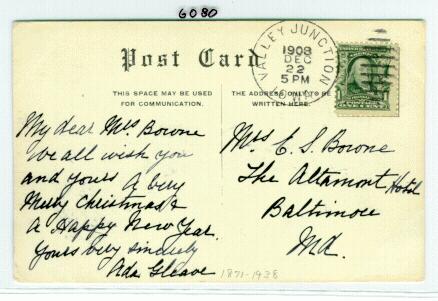 6080
Post Card
THIS SPACE MAY BE USED
FOR COMMUNICATION.
THE ADDRESS ONLY TO BE
WRITTEN HERE.
VALLEY JUNCTION
1908
DEC
22
5 PM
My dear Mrs Bowne
We all wish you
and yours A very
Merry Christmas &
A Happy New Year.
Yours very sincerely
Ada Gleave
1871-1938
Mrs E. S. Bowne
The Altamont Hotel
Baltimore
Md.